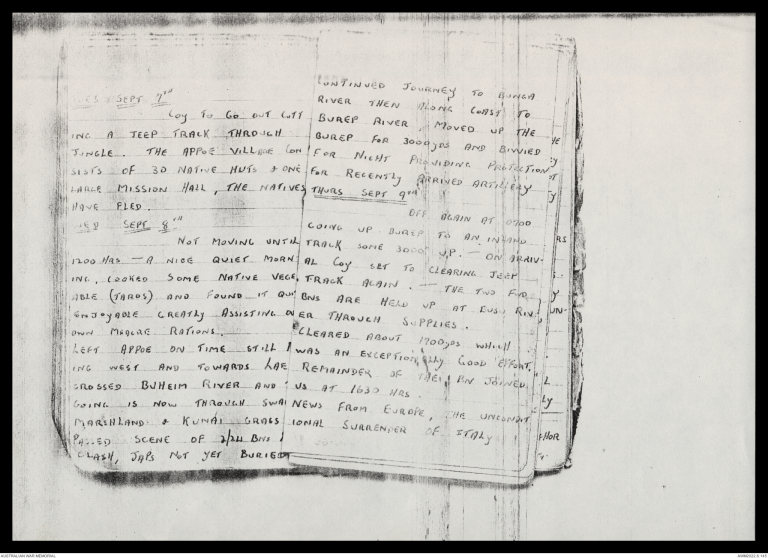 TUES SEPT 7TH
Coy TO GO OUT CUTT
ING A JEEP TRACK THROUGH
JUNGLE. THE APPOE VILLAGE CON
SISTS OF 30 NATIVE HUTS & ONE
LARGE MISSION HALL, THE NATIVES
HAVE FLED.
WED SEPT 8TH
NOT MOVING UNTIL
1200 HRS — A NICE QUIET MORN
ING, COOKED SOME NATIVE VEGE
ABLE (TAROS) AND FOUND IT QUI
ENJOYABLE GREATLY ASSISTING O
OWN MEAGRE RATIONS.
LEFT APPOE ON TIME STILL
ING WEST AND TOWARDS LAE
CROSSED BUHEIM RIVER AND
GOING IS NOW THROUGH SWA
MARSHLAND & KUNAI GRASS
PASSED SCENE OF 2/24 BNS
CLASH, JAPS NOT YET BURIED
CONTINUED JOURNEY TO BUNGA
RIVER THEN ALONG COAST TO
BUREP RIVER, MOVED UP THE
BUREP FOR 3000 YDS AND BIVVIED
FOR NIGHT PROVIDING PROTECTION
FOR RECENTLY ARRIVED ARTILLERY
THURS SEPT 9TH
OFF AGAIN AT 0700
GOING UP BUREP TO AN INLAND
TRACK SOME 3000 UP. — ON ARRIV-
AL Coy SET TO CLEARING JEEP
TRACK AGAIN. — THE TWO FWD
BNS ARE HELD UP AT BUSU RIV-
ER THROUGH SUPPLIES.
CLEARED ABOUT 1700 YDS WHICH
WAS AN EXCEPTIONALLY GOOD EFFORT,
REMAINDER OF THE BN JOINED
US AT 1630 HRS.
NEWS FROM EUROPE, THE UNCONDIT
IONAL SURRENDER OF ITALY
AUSTRALIAN WAR MEMORIAL